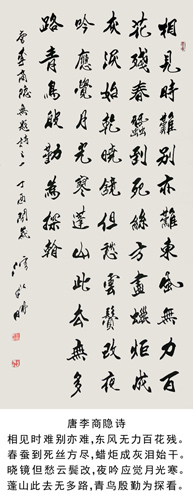 相見時難別亦難東風無力百
花殘春蠶到死絲方盡蠟炬成
灰淚始乾曉鏡但愁雲鬢改夜
吟應覺月光寒蓬山此去無多
路青鳥殷勤為探看
唐李商隱無題詩之一丁酉
唐李商隐诗
相见时难别亦难,东风无力百花残。
春蚕到死丝方尽,蜡炬成灰泪始干。
晓镜但愁云鬓改,夜吟应觉月光寒。
蓬山此去无多路,青鸟殷勤为探看。